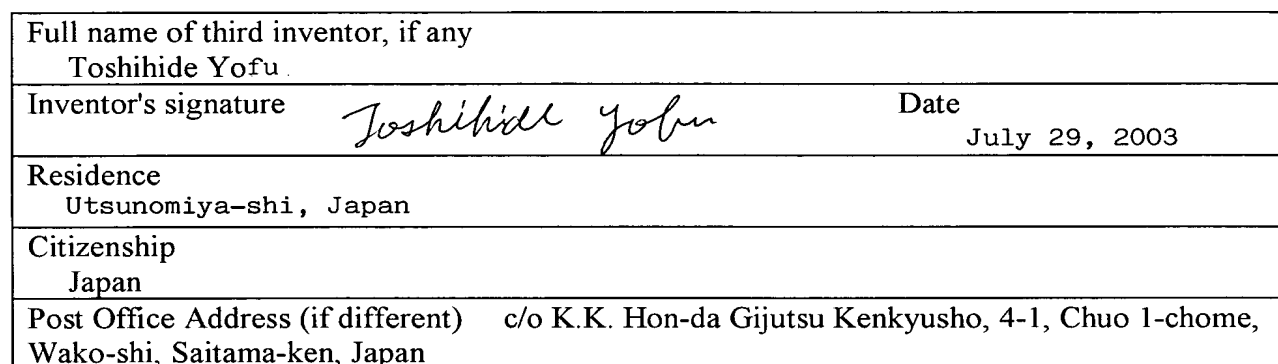 Full name of third inventor, if any
Toshihide Yofu
Inventor's signature Toshihide Yofu Date
July 29, 2003
Residence
Utsunomiya-shi, Japan
Citizenship
Japan
Post Office Address (if different) c/o K.K. Hon-da Gijutsu Kenkyusho, 4-1, Chuo 1-chome,
Wako-shi, Saitama-ken, Japan